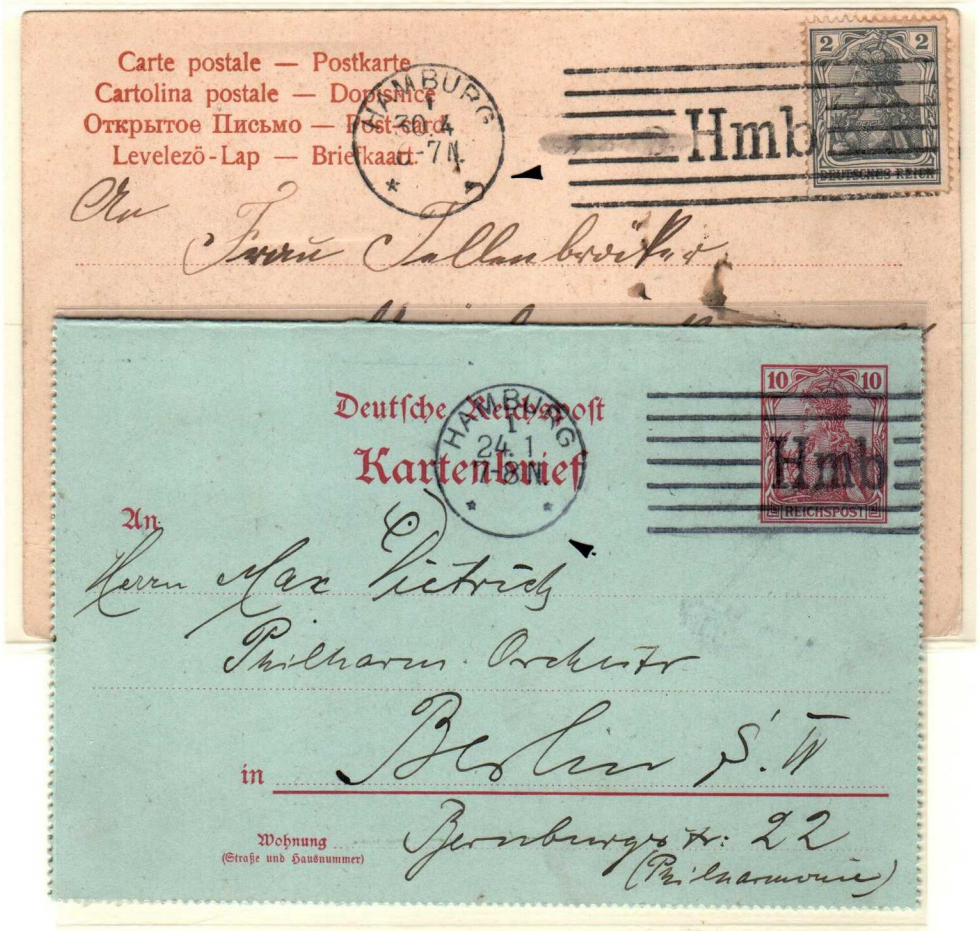 Carte postale — Postkarte
Cartolina postale — Dopisnice
Открытое Письмо — Post-card
Levelező-Lap — Briefkaart
HAMBURG
1
30.4
6-7N.
Hmb
2 2
DEUTSCHES REICH
An
Frau Tellenbröker
Deutsche Reichspost
Kartenbrief
HAMBURG
1
24.1
7-8N
10 10
Hmb
REICHSPOST
An
Herrn Max Dietrich
Philharm. Orchestr
in Berlin S.W
Wohnung
(Straße und Hausnummer)
Bernburgstr. 22
(Philharmonie)